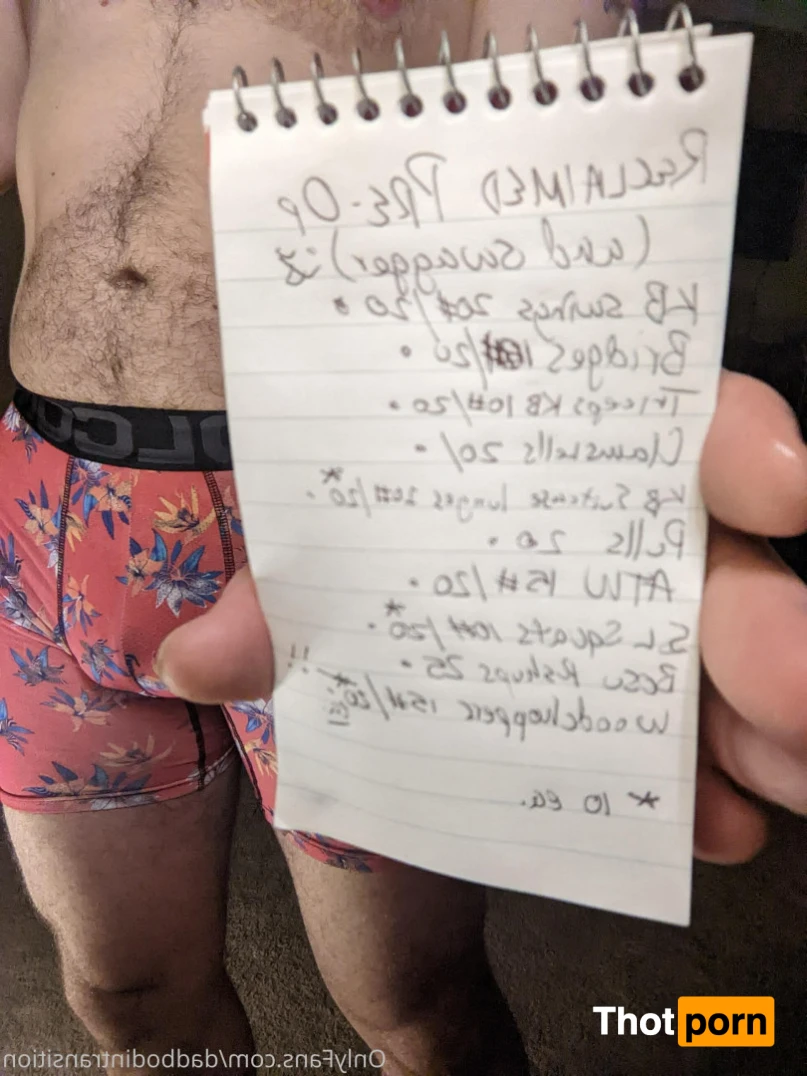 RECLAIMED PRE-OP
(and swagger)
KB swings 20#/20 •
Bridges 10#/20 •
Triceps KB 10#/20 •
Clamshells 20/•
KB Suitcase lunges 20#/20* •
Pulls 20 •
ATW 15#/20 •
SL Squats 10#/20* •
Bosu Pshups 25 •
Woodchoppers 15#/20
* 10 ea.
OnlyFans.com/dadbodintransition
Thot porn